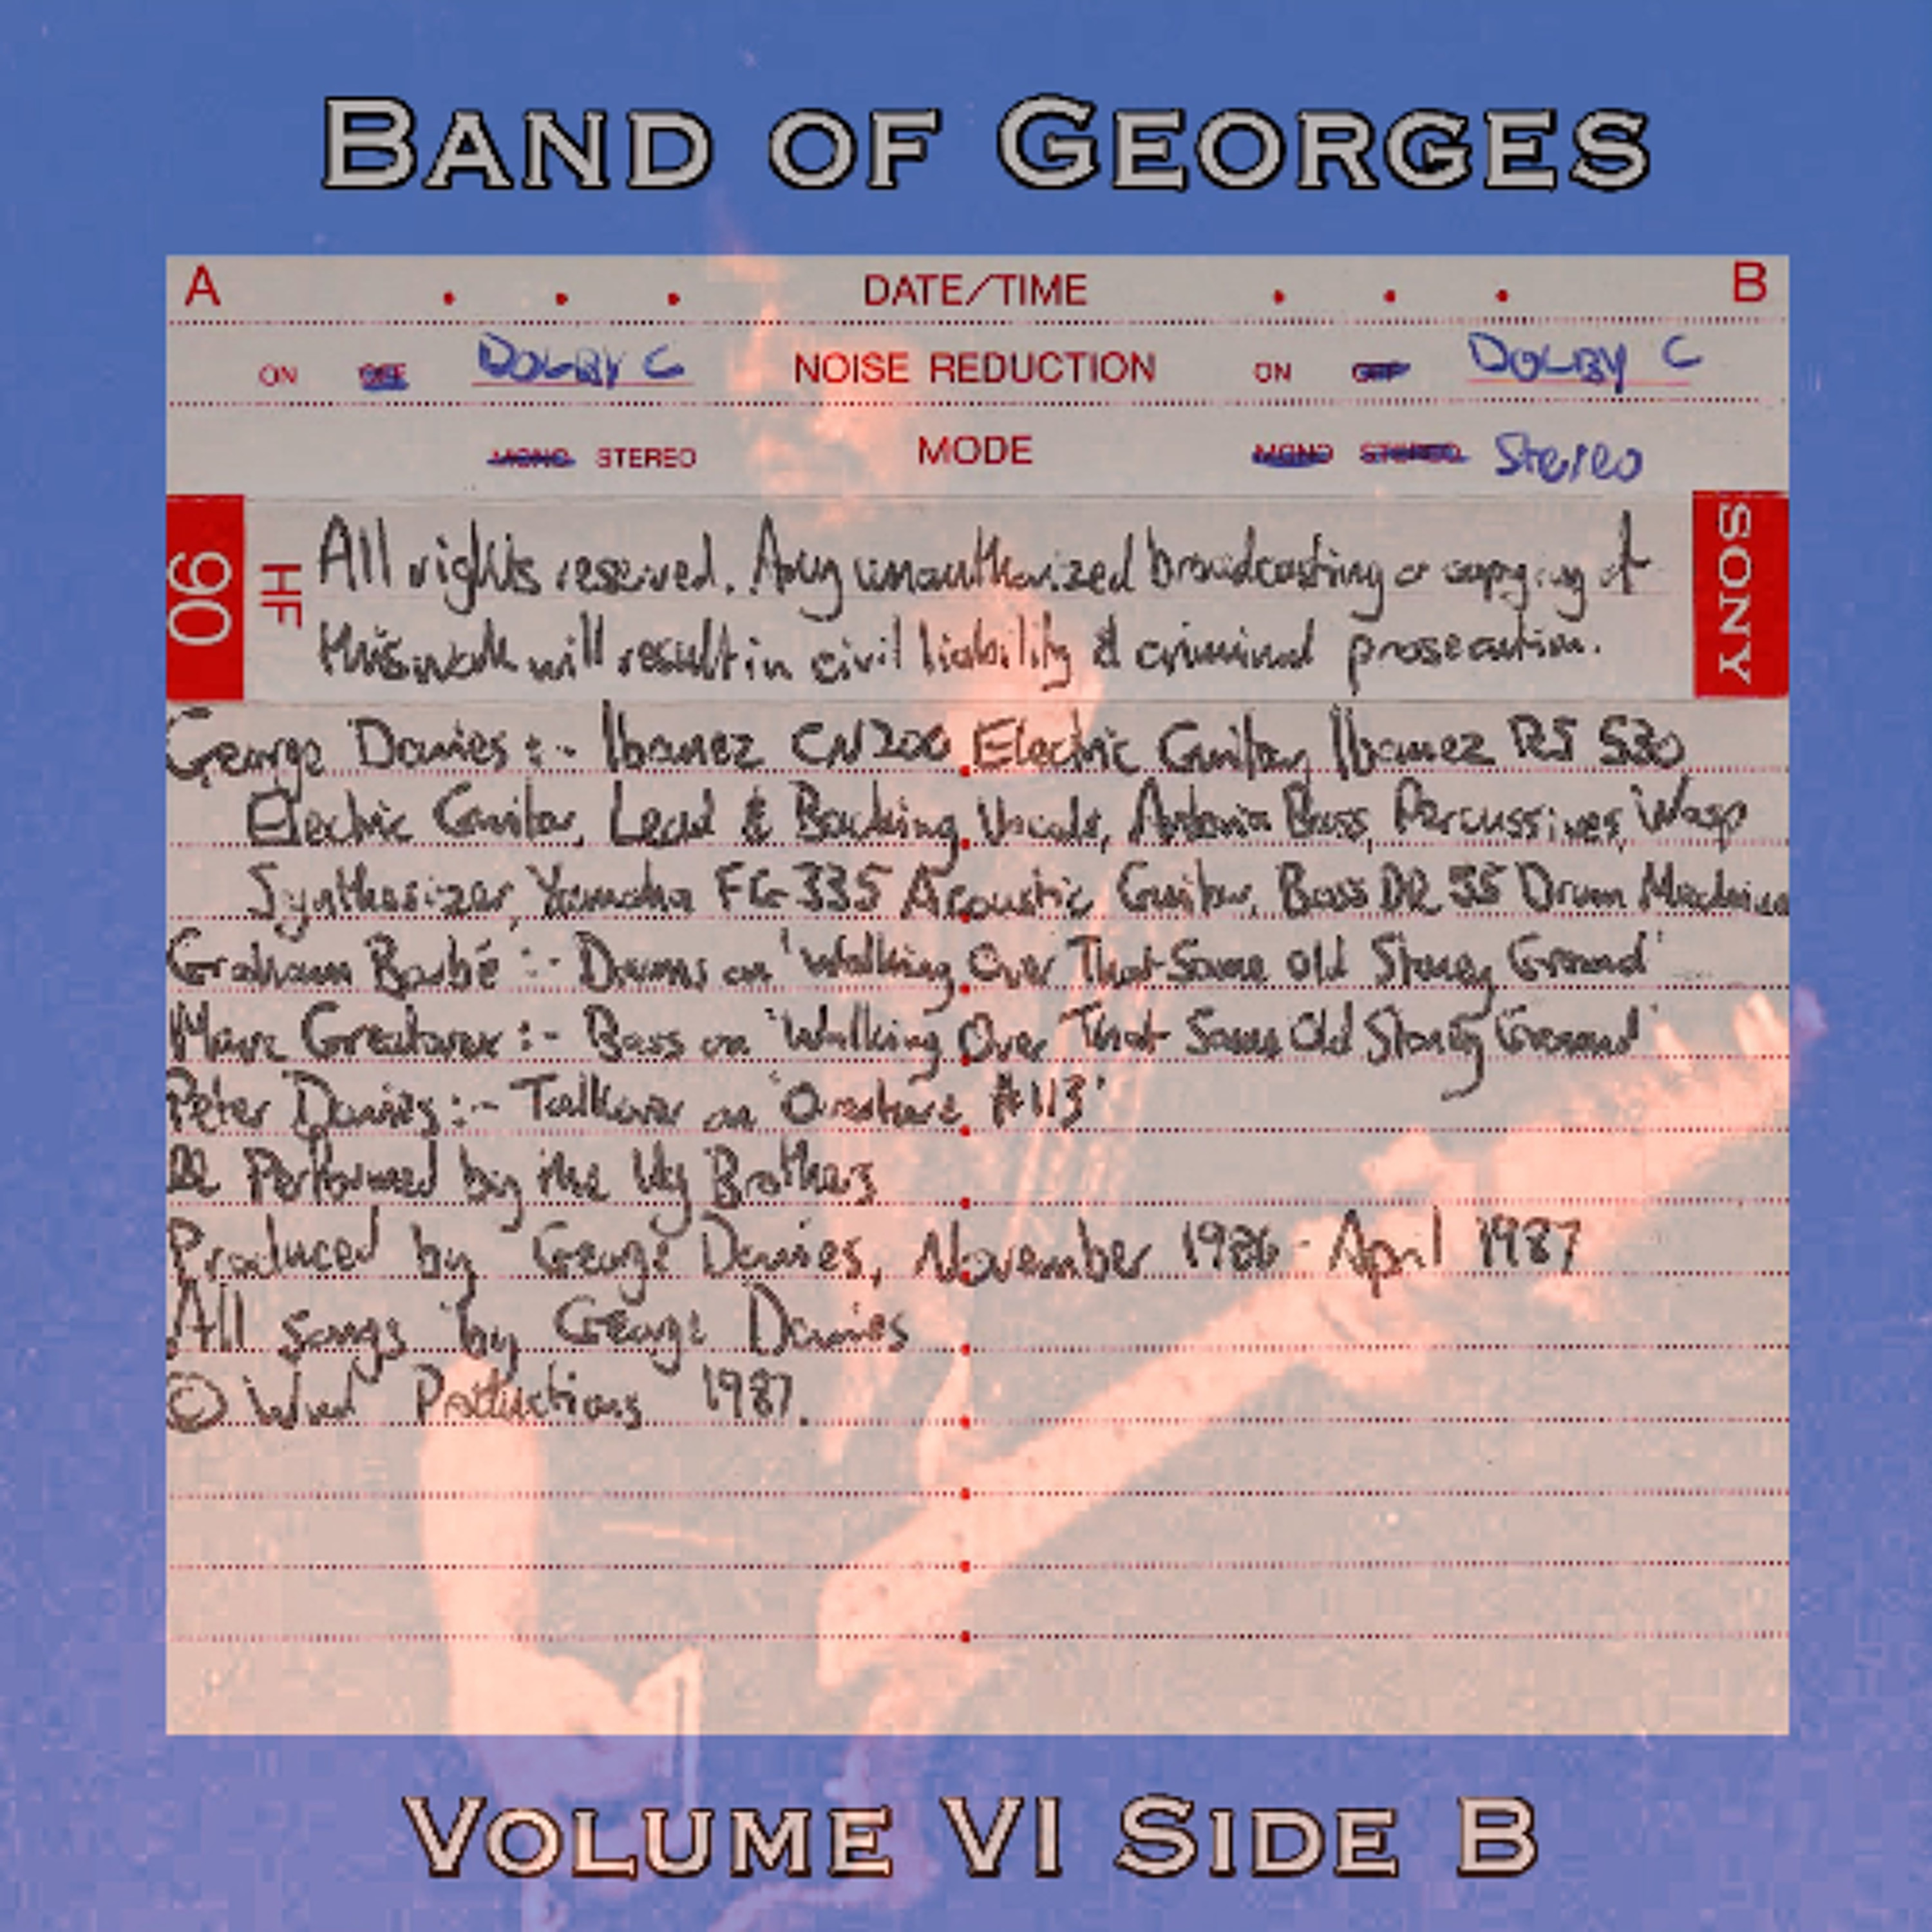 BAND OF GEORGES
A . . . DATE/TIME . . . B
ON OFF DOLBY C NOISE REDUCTION ON OFF DOLBY C
MONO STEREO MODE MONO STEREO Stereo
90 HF All rights reserved. Any unauthorized broadcasting or copying of SONY
this work will result in civil liability & criminal prosecution.
George Davies :- Ibanez CN200 Electric Guitar, Ibanez RS 530
Electric Guitar, Lead & Backing Vocals, Antoria Bass, Percussives, Wasp
Synthesizer, Yamaha FG-335 Acoustic Guitar, Boss DR 55 Drum Machine
Graham Barbé :- Drums on 'Walking Over That Same Old Stoney Ground'
Marc Greatorex :- Bass on 'Walking Over That Same Old Stoney Ground'
Peter Davies :- Talkover on 'Overture #113'
All Performed by the Brothers
Produced by George Davies, November 1986 - April 1987
All songs by George Davies
© Productions 1987.
VOLUME VI SIDE B